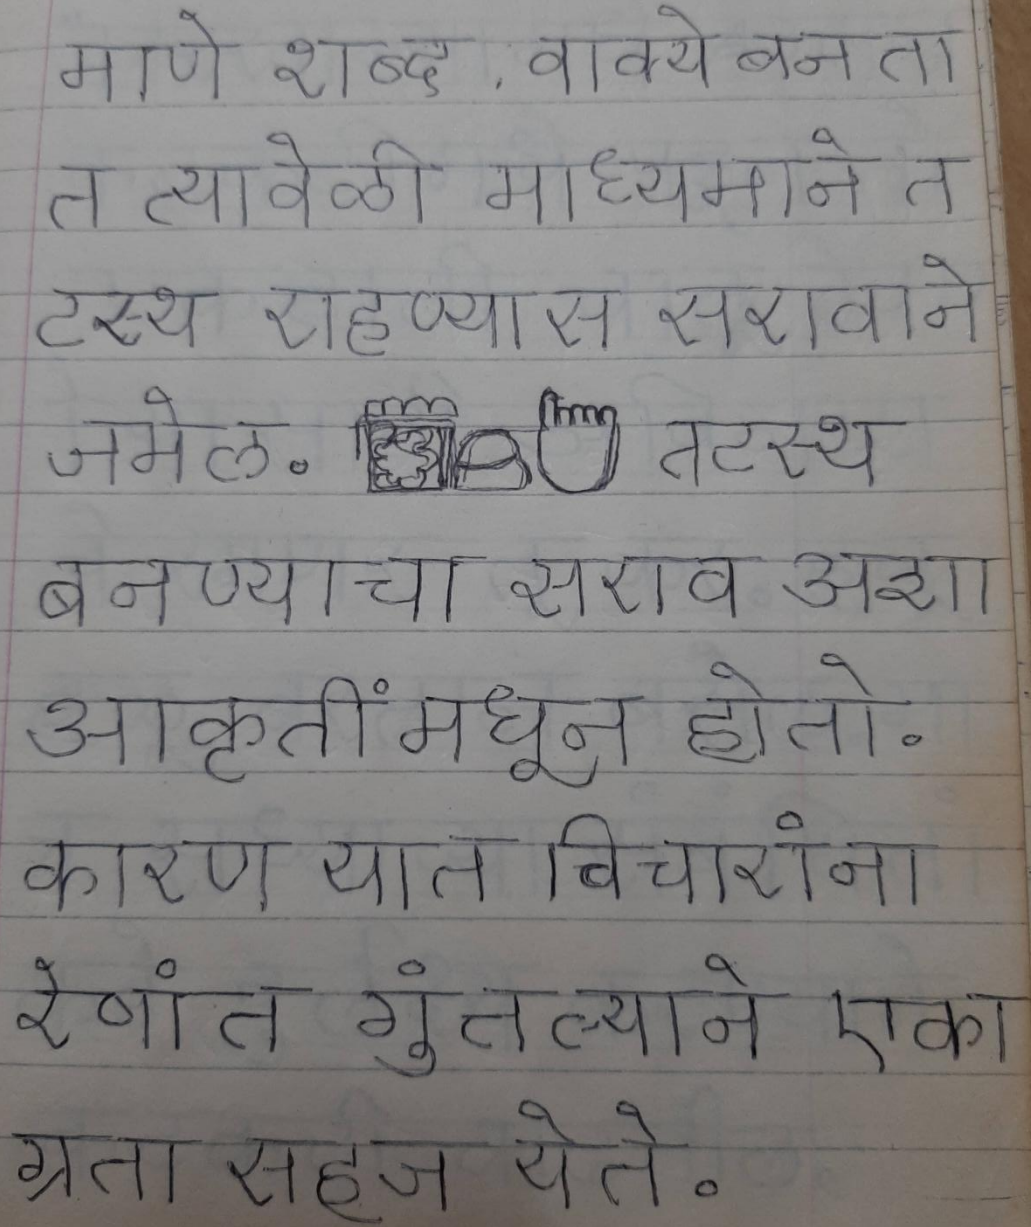 माणे शब्द, वाक्ये बनता
त त्यावेळी माध्यमाने त
टस्थ राहण्यास सरावाने
जमेल. तटस्थ
बनण्याचा सराव अशा
आकृतींमधून होतो.
कारण यात विचारांना
रेषांत गुंतल्याने एका
ग्रता सहज येते.